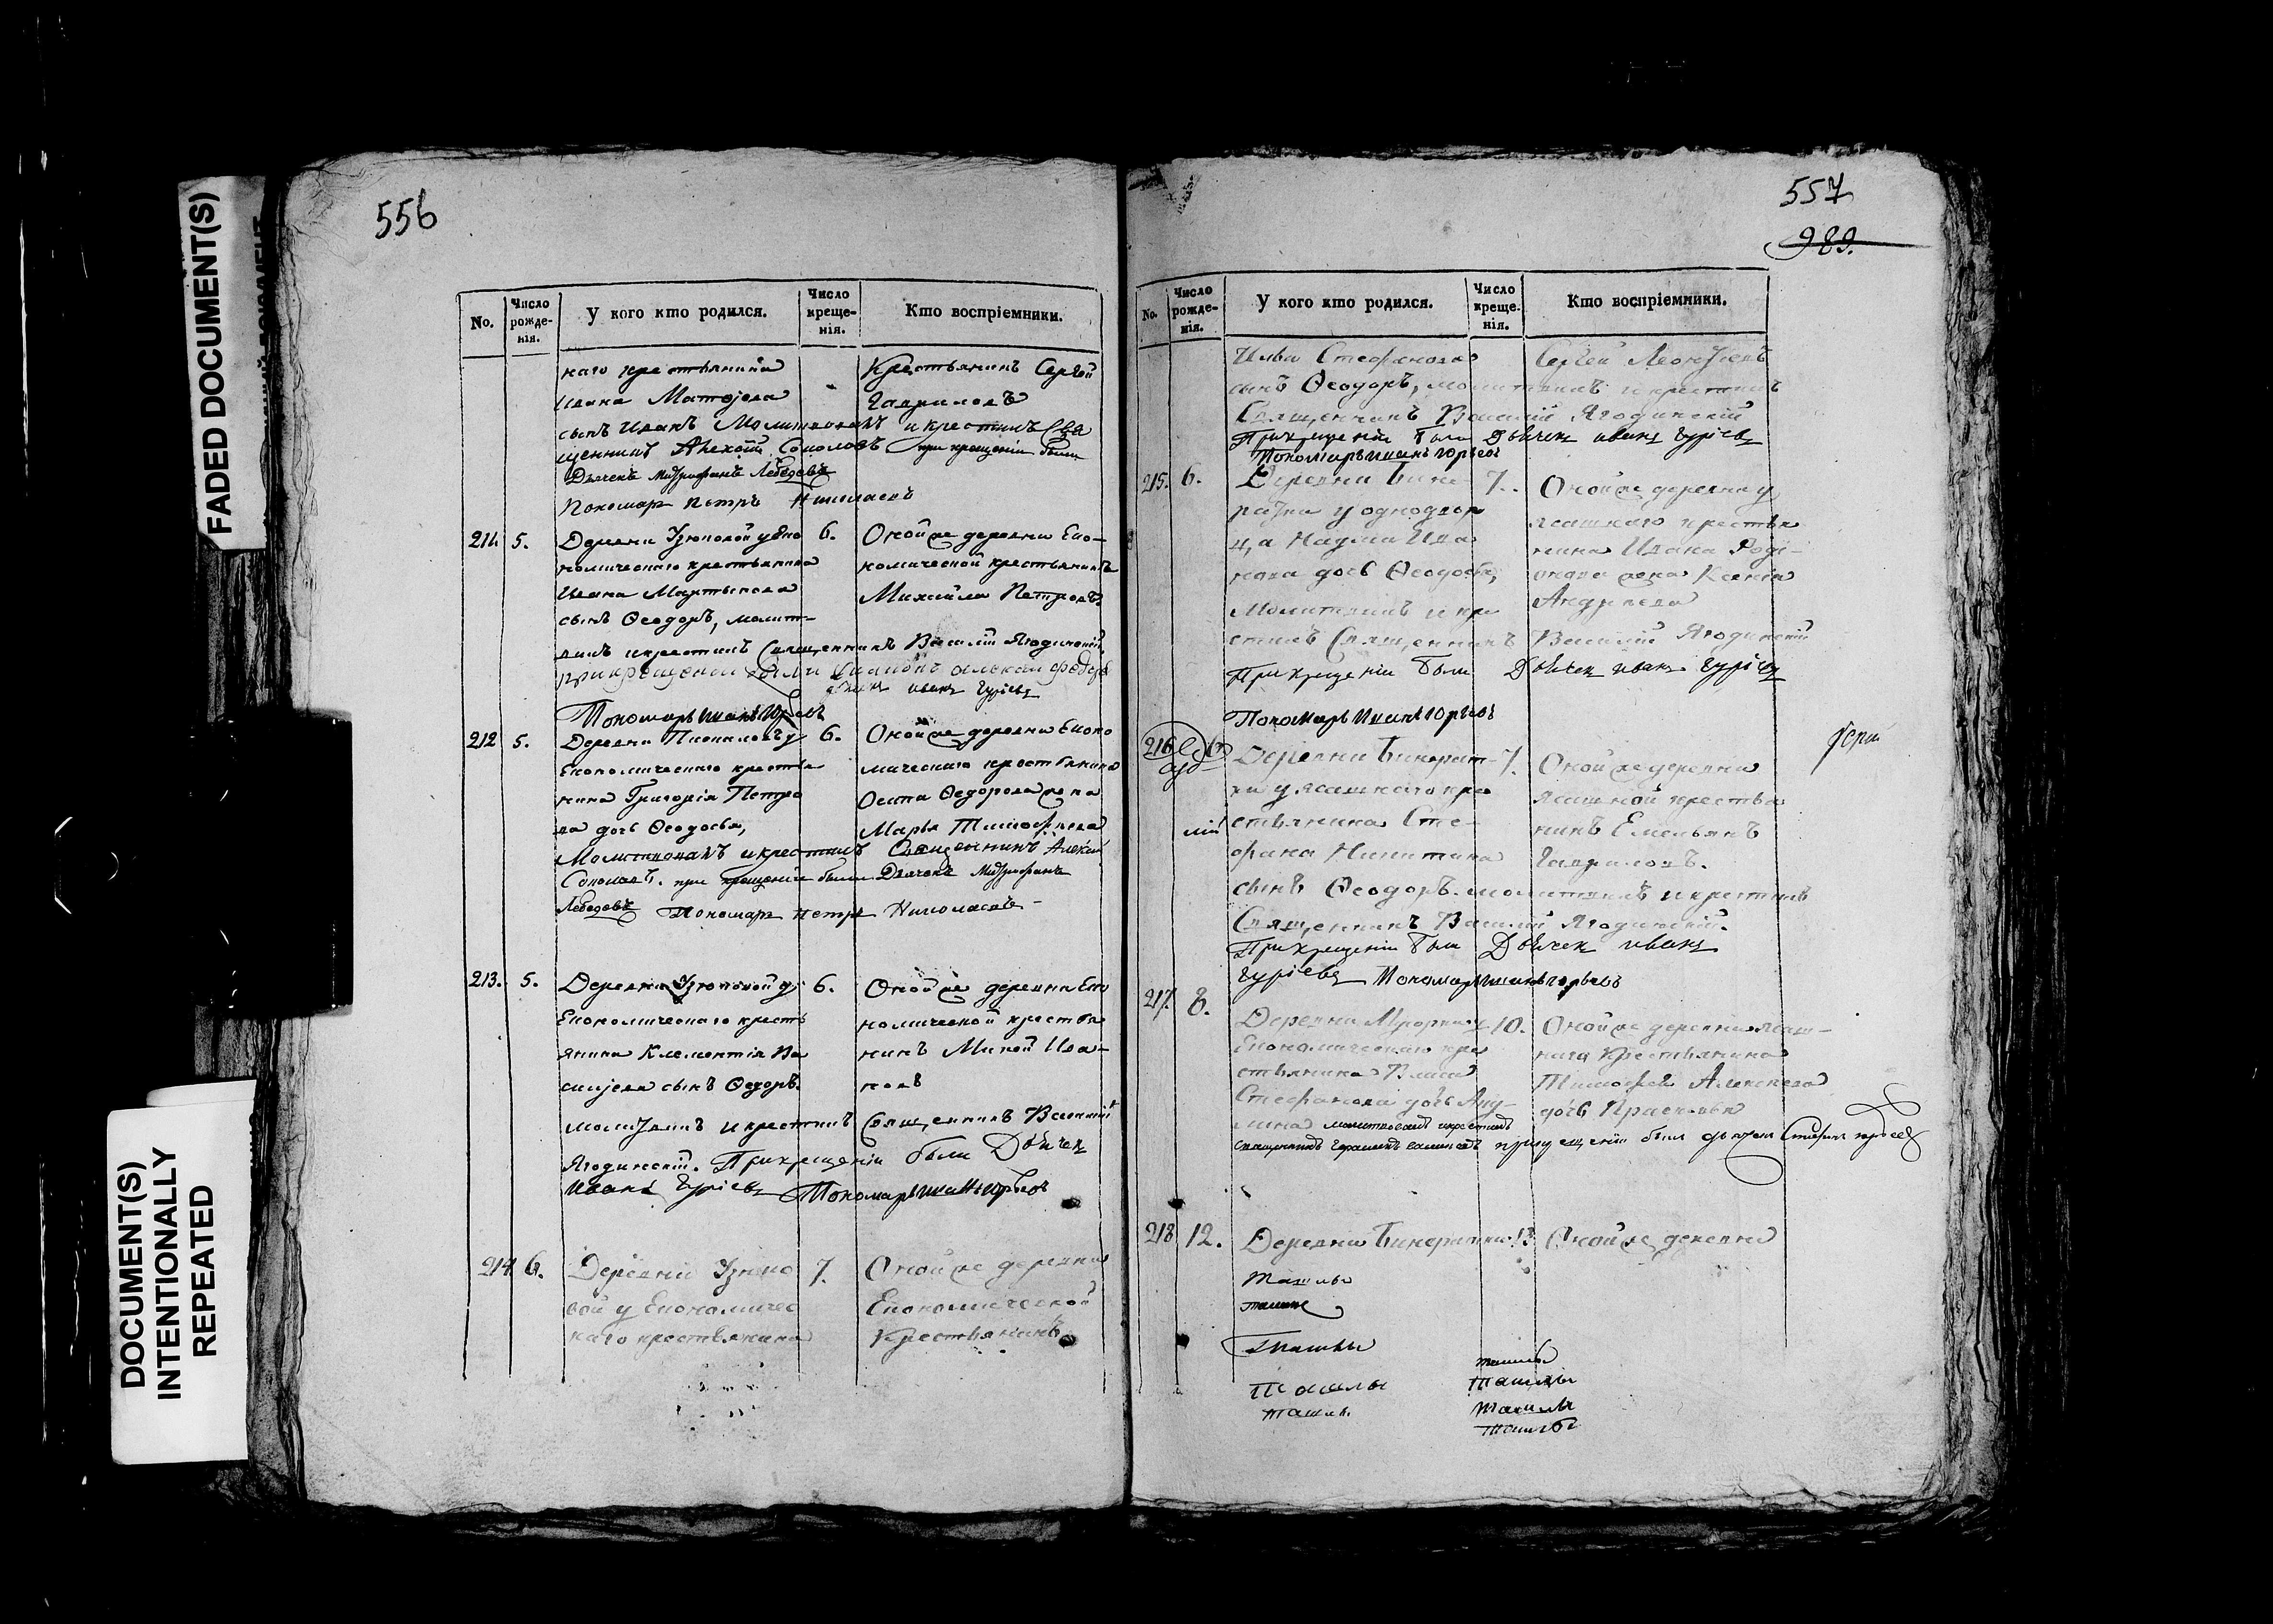 FADED DOCUMENT(S)
DOCUMENT(S)
INTENTIONALLY
REPEATED
556
No.
Число рожде-нія.
У кого кто родился.
Число креще-нія.
Кто воспріемники.
наго крестьянина
Ивана Матѳѣева
сынъ Иванъ Молитвовалъ и крестилъ Свя
щенникъ Алексѣй Соколовъ при крещеніи были
Дьячекъ Митрофанъ Лебедевъ
Пономарь Петръ Николаевъ
Крестьянинъ Сергей
Гавриловъ
211. 5.
Деревни Узюковой у Эко
номическаго крестьянина
Ивана Мартынова
сынъ Ѳеодоръ, молит-
вилъ и крестилъ Священникъ Василій Ягодинской,
при крещеніи были
иванъ Гуріевъ
Пономарь Иванъ Юрьевъ
6.
Оной же деревни Эко-
номической крестьянинъ
Михайла Петровъ.
212 5.
Деревни у
Економическаго крестья
нина Григорія Петро
ва дочь Ѳеодосья,
Молитвовалъ и крестилъ Священникъ Алексѣй
Соколовъ. при крещеніи были Дьячекъ Митрофанъ
Лебедевъ Пономарь Петръ Николаевъ
6.
Оной же деревни Эконо
мическаго крестьянина
Осипа Ѳедорова жена
Марья Тимофеева
213. 5.
Деревни Узюковой у
Економическаго кресть
янина Климентія Ва
сильева сынъ Ѳедоръ.
молитвилъ и крестилъ Священникъ Василій
Ягодинскій. При крещеніи были Дьячек
Иванъ Гуріевъ Пономарь Иванъ Юрьевъ
6.
Оной же деревни Эко
номической крестья
нинъ Ива-
новъ
214 6.
Деревни Узюко
вой у Економичес
каго крестьянина
7.
Оной же деревни
Економической
Крестьянинъ
557
989.
No.
Число рожде-нія.
У кого кто родился.
Число креще-нія.
Кто воспріемники.
Ильи Стефанова
сынъ Ѳеодоръ, молитвилъ и крестилъ
Священникъ Василій Ягодинскій
При крещеніи были Дьячек иванъ Гуріевъ
Пономарь Иванъ Юрьевъ
Сергей Леонтьевъ
215. 6.
Деревни Бине-
ратки у однодвор
ца Наума Ива
нова дочь Ѳеодосья,
Молитвилъ и кре
стилъ Священникъ Василій Ягодинскій
При крещеніи были Дьячек иванъ Гуріевъ
Пономарь Иванъ Юрьевъ
7.
Оной же деревни у
ясашнаго крестья
нина Ивана Роді-
онова жена Ксенія
Андреева
216 6
Деревни Бинерат-
ки у ясашнаго кре
стьянина Сте-
фана Никитина
сынъ Ѳеодоръ. молитвилъ и крестилъ
Священникъ Василій Ягодинскій.
При крещеніи были Дьячек иванъ
Гуріевъ Пономарь Иванъ Юрьевъ
7.
Оной же деревни
ясашной крестья
нинъ Емельянъ
Гавриловъ.
217. 8.
Деревни у
Економическаго кре
стьянина Власа
Стефанова дочь Аку-
лина молитвовалъ и крестилъ
священникъ при крещеніи был дьячек Стефан
10.
Оной же деревни ясаш-
наго Крестьянина
Тимофей Алексеева
дочь Прасковья
218 12.
Деревни Бинератки 13 Оной же деревни
Ташлы
Ташлы
Ташлы
Ташлы
Ташлы
Ташлы
Ташлы